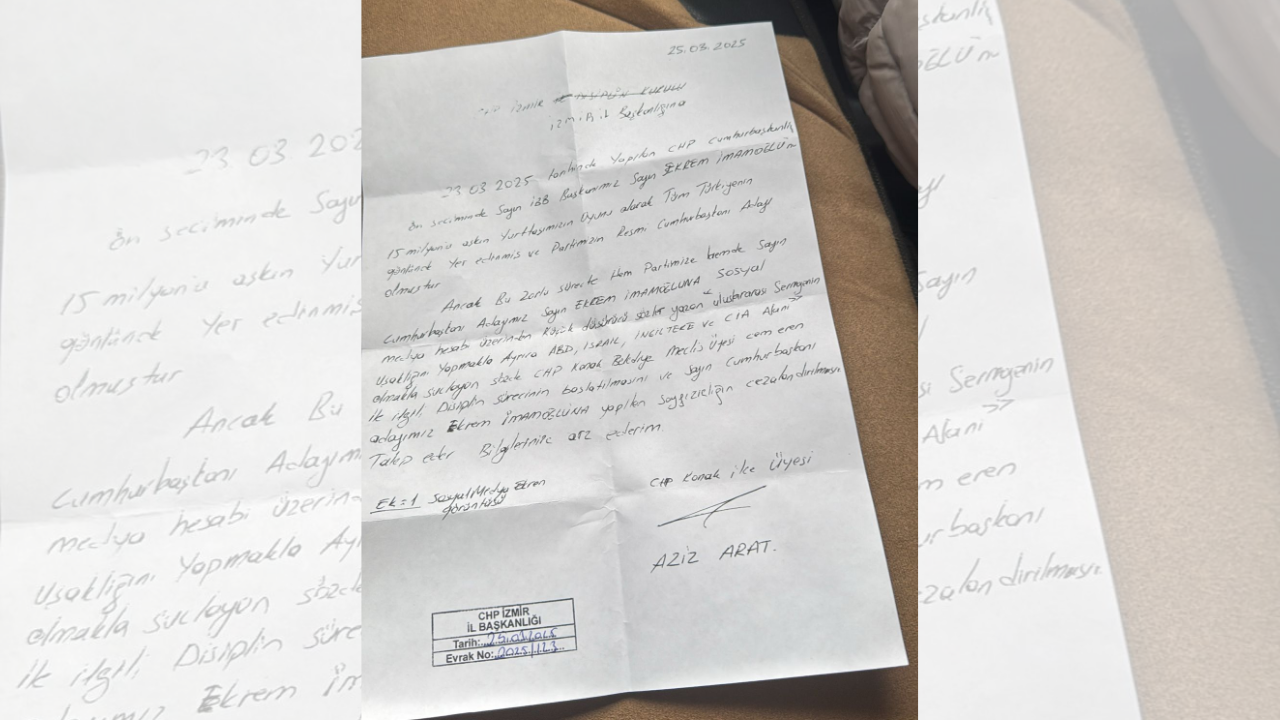 25.03.2025
CHP İZMİR DİSİPLİN KURULU
İZMİR İl Başkanlığına
23.03.2025 tarihinde Yapılan CHP Cumhurbaşkanlığı
Ön seciminde Sayın İBB Başkanımız Sayın EKREM İMAMOĞLU'n
15 milyonu aşkın Yurttaşımızın Oyunu alarak Tüm Türkiyenin
gönlünde Yer edinmiş ve Partimizin Resmi Cumhurbaşkanı Adayı
olmuştur
Ancak Bu Zorlu sürecte Hem Partimize hemde Sayın
Cumhurbaştanı Adayımız Sayın EKREM İMAMOĞLUNA SOSYAL
medya hesabı üzerinden Küçük düşürücü sözler yazan "uluslararası Sermayenin
Uşaklığını Yapmakla Ayrıca ABD, İSRAİL, İNGİLTERE ve CIA Ajanı"
olmakla suclayan sözde CHP Konak Belediye Meclis Üyesi cem eren
ile ilgili Disiplin sürecinin başlatılmasını ve Sayın Cumhurbaşkanı
adayımız Ekrem İMAMOĞLUNA yapılan saygısızlığın cezalandırılmasını
Takip eder Bilgilerinize arz ederim
CHP Konak ilce Üyesi
Ek=1 Sosyal Medya Ekran
görüntüsü
AZİZ ARAT.
CHP İZMİR
İL BAŞKANLIĞI
Tarih: 25.03.2025
Evrak No: 2025/123